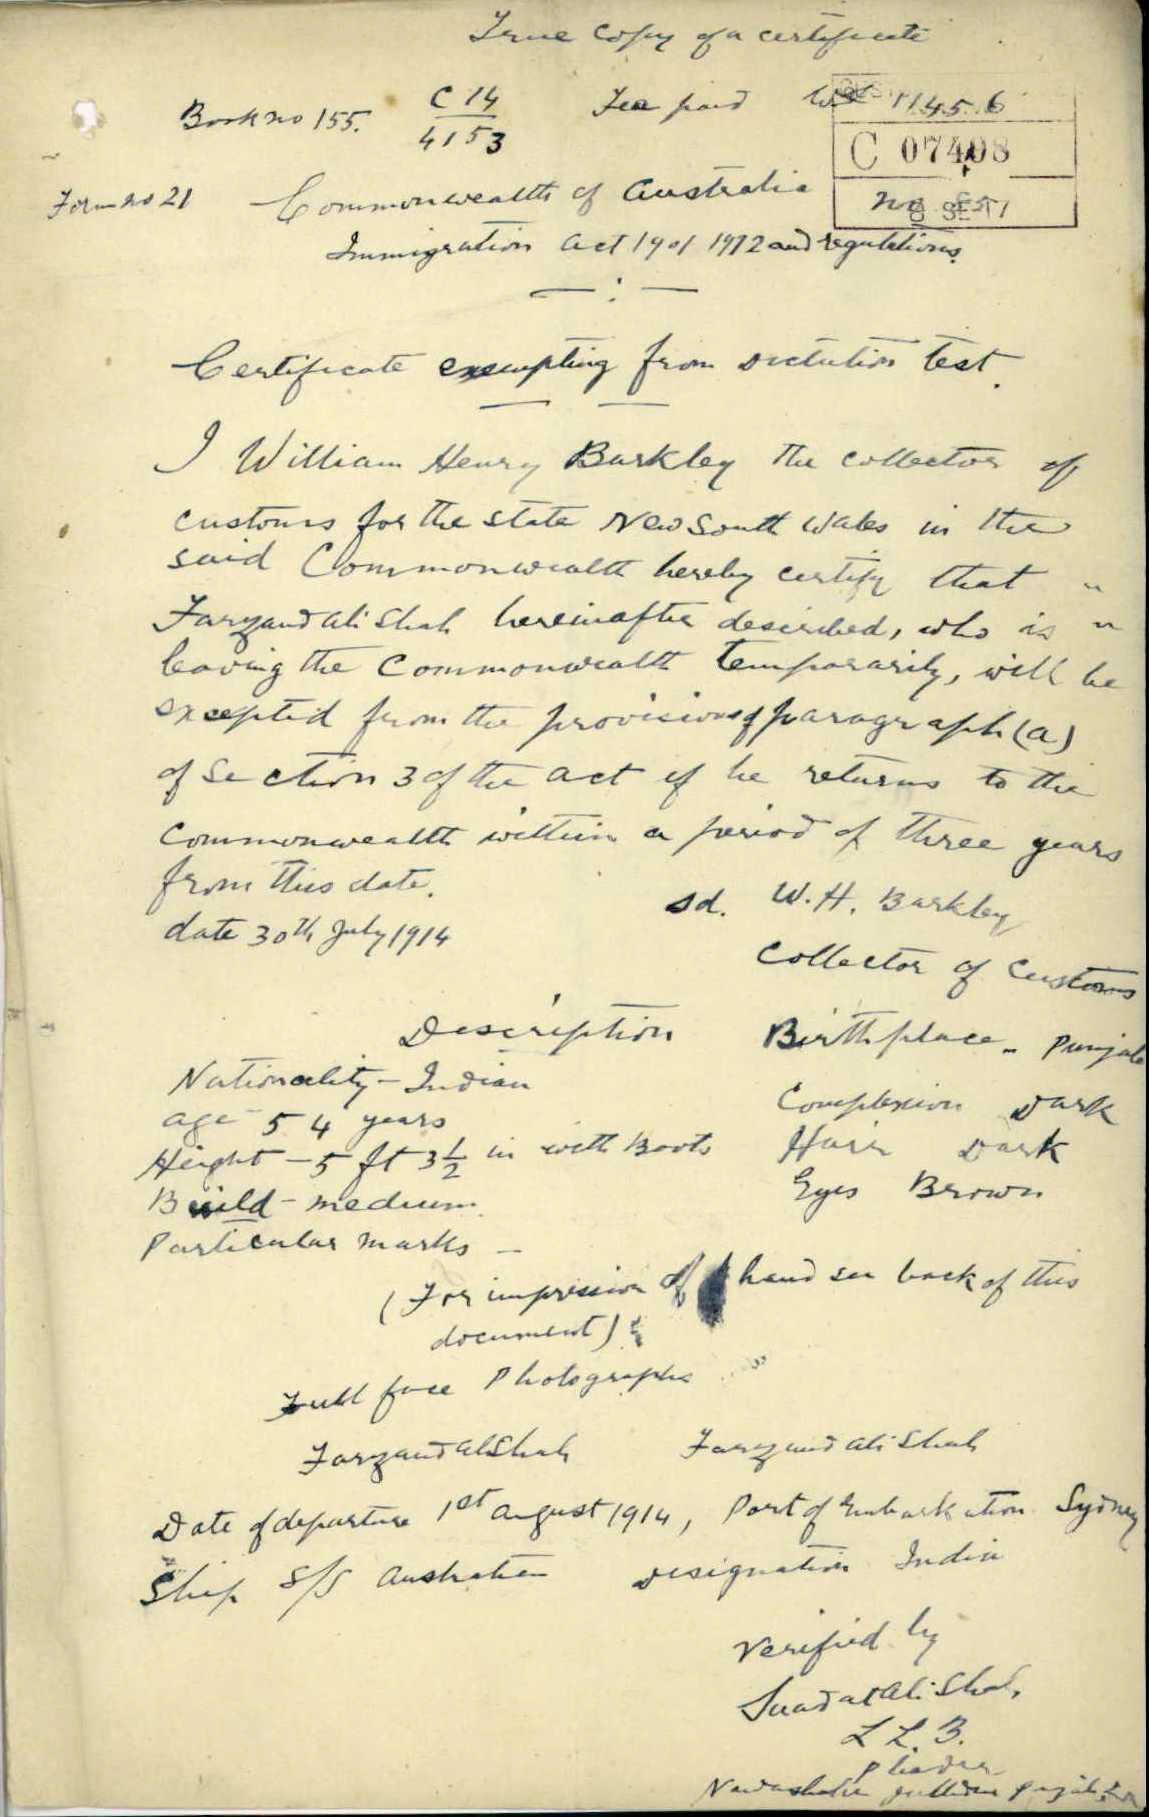 True Copy of a certificate
Book no 155. C 14 / 4153 Fee paid 1145.6
C 07408
Form no 21 Commonwealth of Australia
Immigration Act 1901 1912 and regulations.
Certificate exempting from Dictation test.
I William Henry Barkley the collector of
customs for the state New South Wales in the
said Commonwealth hereby certify that "
Farzand Ali Shah hereinafter described, who is "
leaving the Commonwealth temporarily, will be
excepted from the provisions of paragraph (a)
of Section 3 of the Act if he returns to the
Commonwealth within a period of three years
from this date.
sd. W.H. Barkley
date 30th July 1914
Collector of Customs
Description
Birthplace - Punjab
Nationality - Indian
Complexion Dark
age 54 years
Height - 5 ft 3½ in with Boots Hair Dark
Build - medium Eyes Brown
Particular marks -
(For impression of hand see back of this
document)
Full face Photographs
Farzand Ali Shah Farzand Ali Shah
Date of departure 1st August 1914, Port of Embarkation Sydney
Ship S/S Australien Designation India
Verified by
Ali Shah,
L L. B.
Pleader